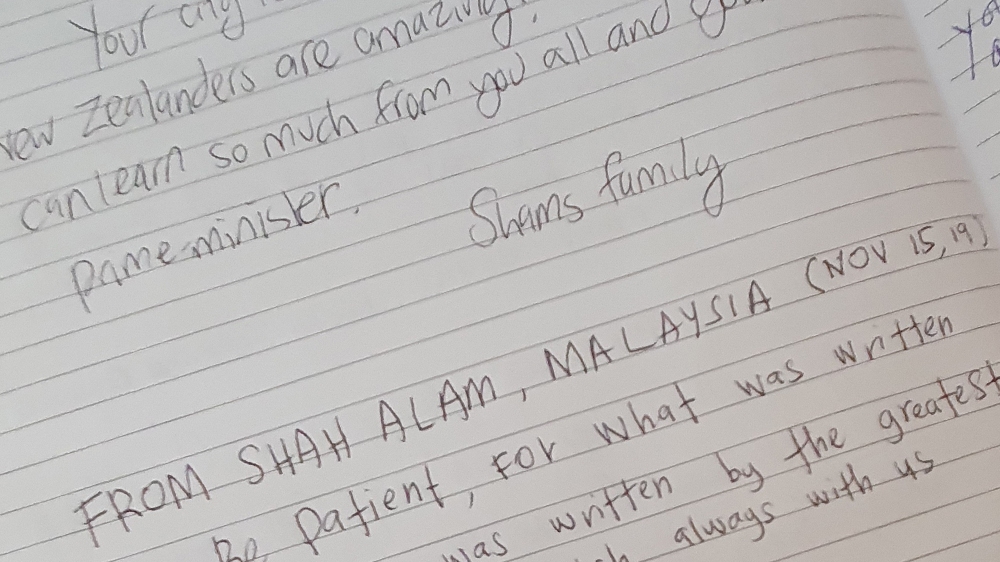 Your
New Zealanders are amazing.
can learn so much from you all and
prime minister.
Shams family
FROM SHAH ALAM, MALAYSIA (NOV 15, 19)
Be patient, For what was written
was written by the greatest
always with us